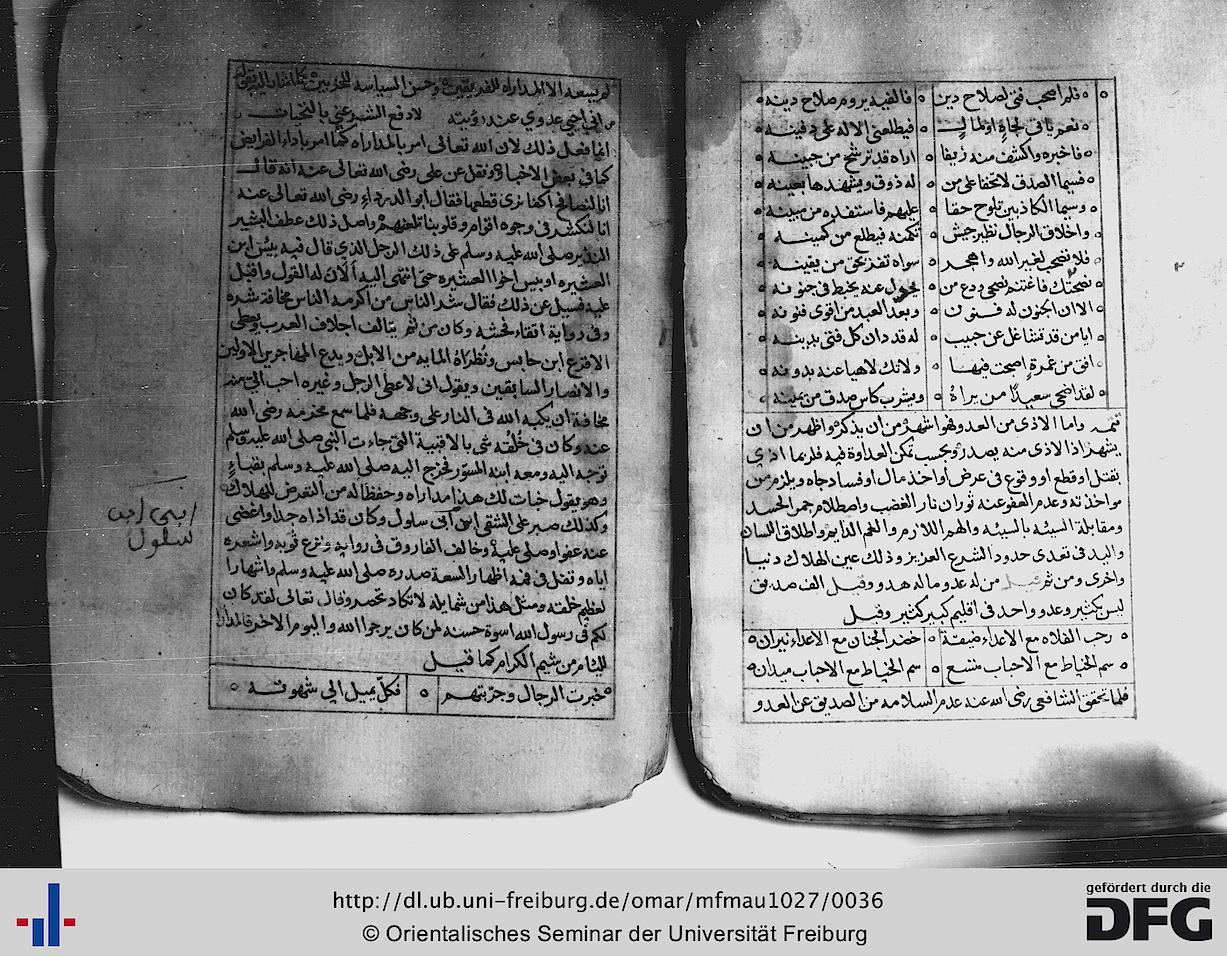 فلم اصحب فتى لصلاح دين فالفيه يروم صلاح دينه
نعم يأتي لجاهٍ اولمالٍ فيطلعني الاله على دفينه
فاخبره واكشف منه زيفا اراه قد ترشح من جبينه
فسيما الصدق لا تخفا على من له ذوق ويشهدها بعينه
وسيما الكاذبين تلوح حقا عليهم فاستفده من مبينه
واخلاق الرجال نظير جيش تكمنه فيطلع من كمينه
فلا تصحب لغير الله واهجر سواه تفز بحق من يقينه
نصحتك فاغتنم نصحي ودع من يحول عنه يخبط في جنونه
الا ان الجنون له فنون وبعد العبد من اقوى فنونه
ايا من قد تشاغل عن حبيب له قد دان كل فتى بدينه
افق من غمرة اصبحت فيها ولا تك لاهيا عنه بدونه
لقد اضحى سعيدًا من يراهُ ويشرب كاس صدق من يمينه
واما الاذى من العدو فهو اشهر من ان يذكر واظهر من ان
يشهر اذا الاذى منه يصدر وبحسب تمكن العداوة فيه فلربما اذي
بقتل او قطع او وقوع في عرض او اخذ مال او فساد جاه ويلزم من
مواخذته وعدم العفو عنه ثوران نار الغضب واصطلام جمر الحسد
ومقابلة السيئه بالسيئه والهم اللازم والغم الدايم واطلاق اللسان
واليد في تعدى حدود الشرع العزيز وذلك عين الهلاك دنيا
واخرى ومن ثم قيل من له عدو ماله هدو وقيل الف صديق
ليس بكثير وعدو واحد في اقليم كبير كثير وقيل
رحب الفلاه مع الاعداء ضيقة خضر الجنان مع الاعداء نيران
سم الخياط مع الاحباب متسع سم الخياط مع الاحباب ميدان
فلما تحقق الشافعي رضى الله عنه عدم السلامه من الصديق عن العدو
لم يسعه الا المداراه للفريقين وحسن السياسه للحزبين كما اشار اليه بقوله
اني احيي عدوي عند رؤيته لادفع الشر عني بالتحيات
انما فعل ذلك لان الله تعالى امر بالمداراه كما امر باداء الفرايض
كما في بعض الاخبار ونقل عن على رضى الله تعالى عنه انه قال
انا لنصافح اكفا نرى قطعها فقال ابو الدرداء رضى الله تعالى عنه
انا لنكشر في وجوه اقوام وقلوبنا تلعنهم واصل ذلك عطف البشير
النذير صلى الله عليه وسلم على ذلك الرجل الذي قال فيه بيس ابن
العشيره او بيس اخو العشيره حتى انتهى اليه الان له القول واقبل
عليه فسيل عن ذلك فقال شر الناس من اكرمه الناس مخافة شره
وفي رواية اتقاء فحشه وكان من ثم يتالف اجلاف العرب يعطى
الاقرع ابن حابس ونظراه المايه من الابل ويدع المهاجرين الاولين
والانصار السابقين ويقول انى لاعطى الرجل وغيره احب الى منه
مخافة ان يكبه الله في النار على وجهه فلما سمع مخرمه رضى الله
عنه وكان في خلقه شى بالاقبية التى جاءت النبى صلى الله عليه وسلم
توجه اليه ومعه ابنه المسور فخرج اليه صلى الله عليه وسلم بقباءٍ
وهو يقول خبات لك هذا مداراه وحفظا له من التعرض للهلاك
وكذلك صبر على الشقى ابن ابى سلول وكان قد اذاه جدا واغضى
عنه عفوا وصلى عليه وخالف الفاروق في روايه ونزع ثوبه واشعره
اياه وتفل في فمه اظهار السعة صدره صلى الله عليه وسلم واشهارا
لعظيم خلقه ومثل هذا من شمايله لا تكاد تحصر وقال تعالى لقد كان
لكم في رسول الله اسوة حسنه لمن كان يرجوا الله واليوم الاخر فالمدارا
لليام من شيم الكرام كما قيل
خبرت الرجال وجربتهم فكل يميل الى شهوته
ابى ابن
سلول
http://dl.ub.uni-freiburg.de/omar/mfmau1027/0036
© Orientalisches Seminar der Universität Freiburg
gefördert durch die
DFG